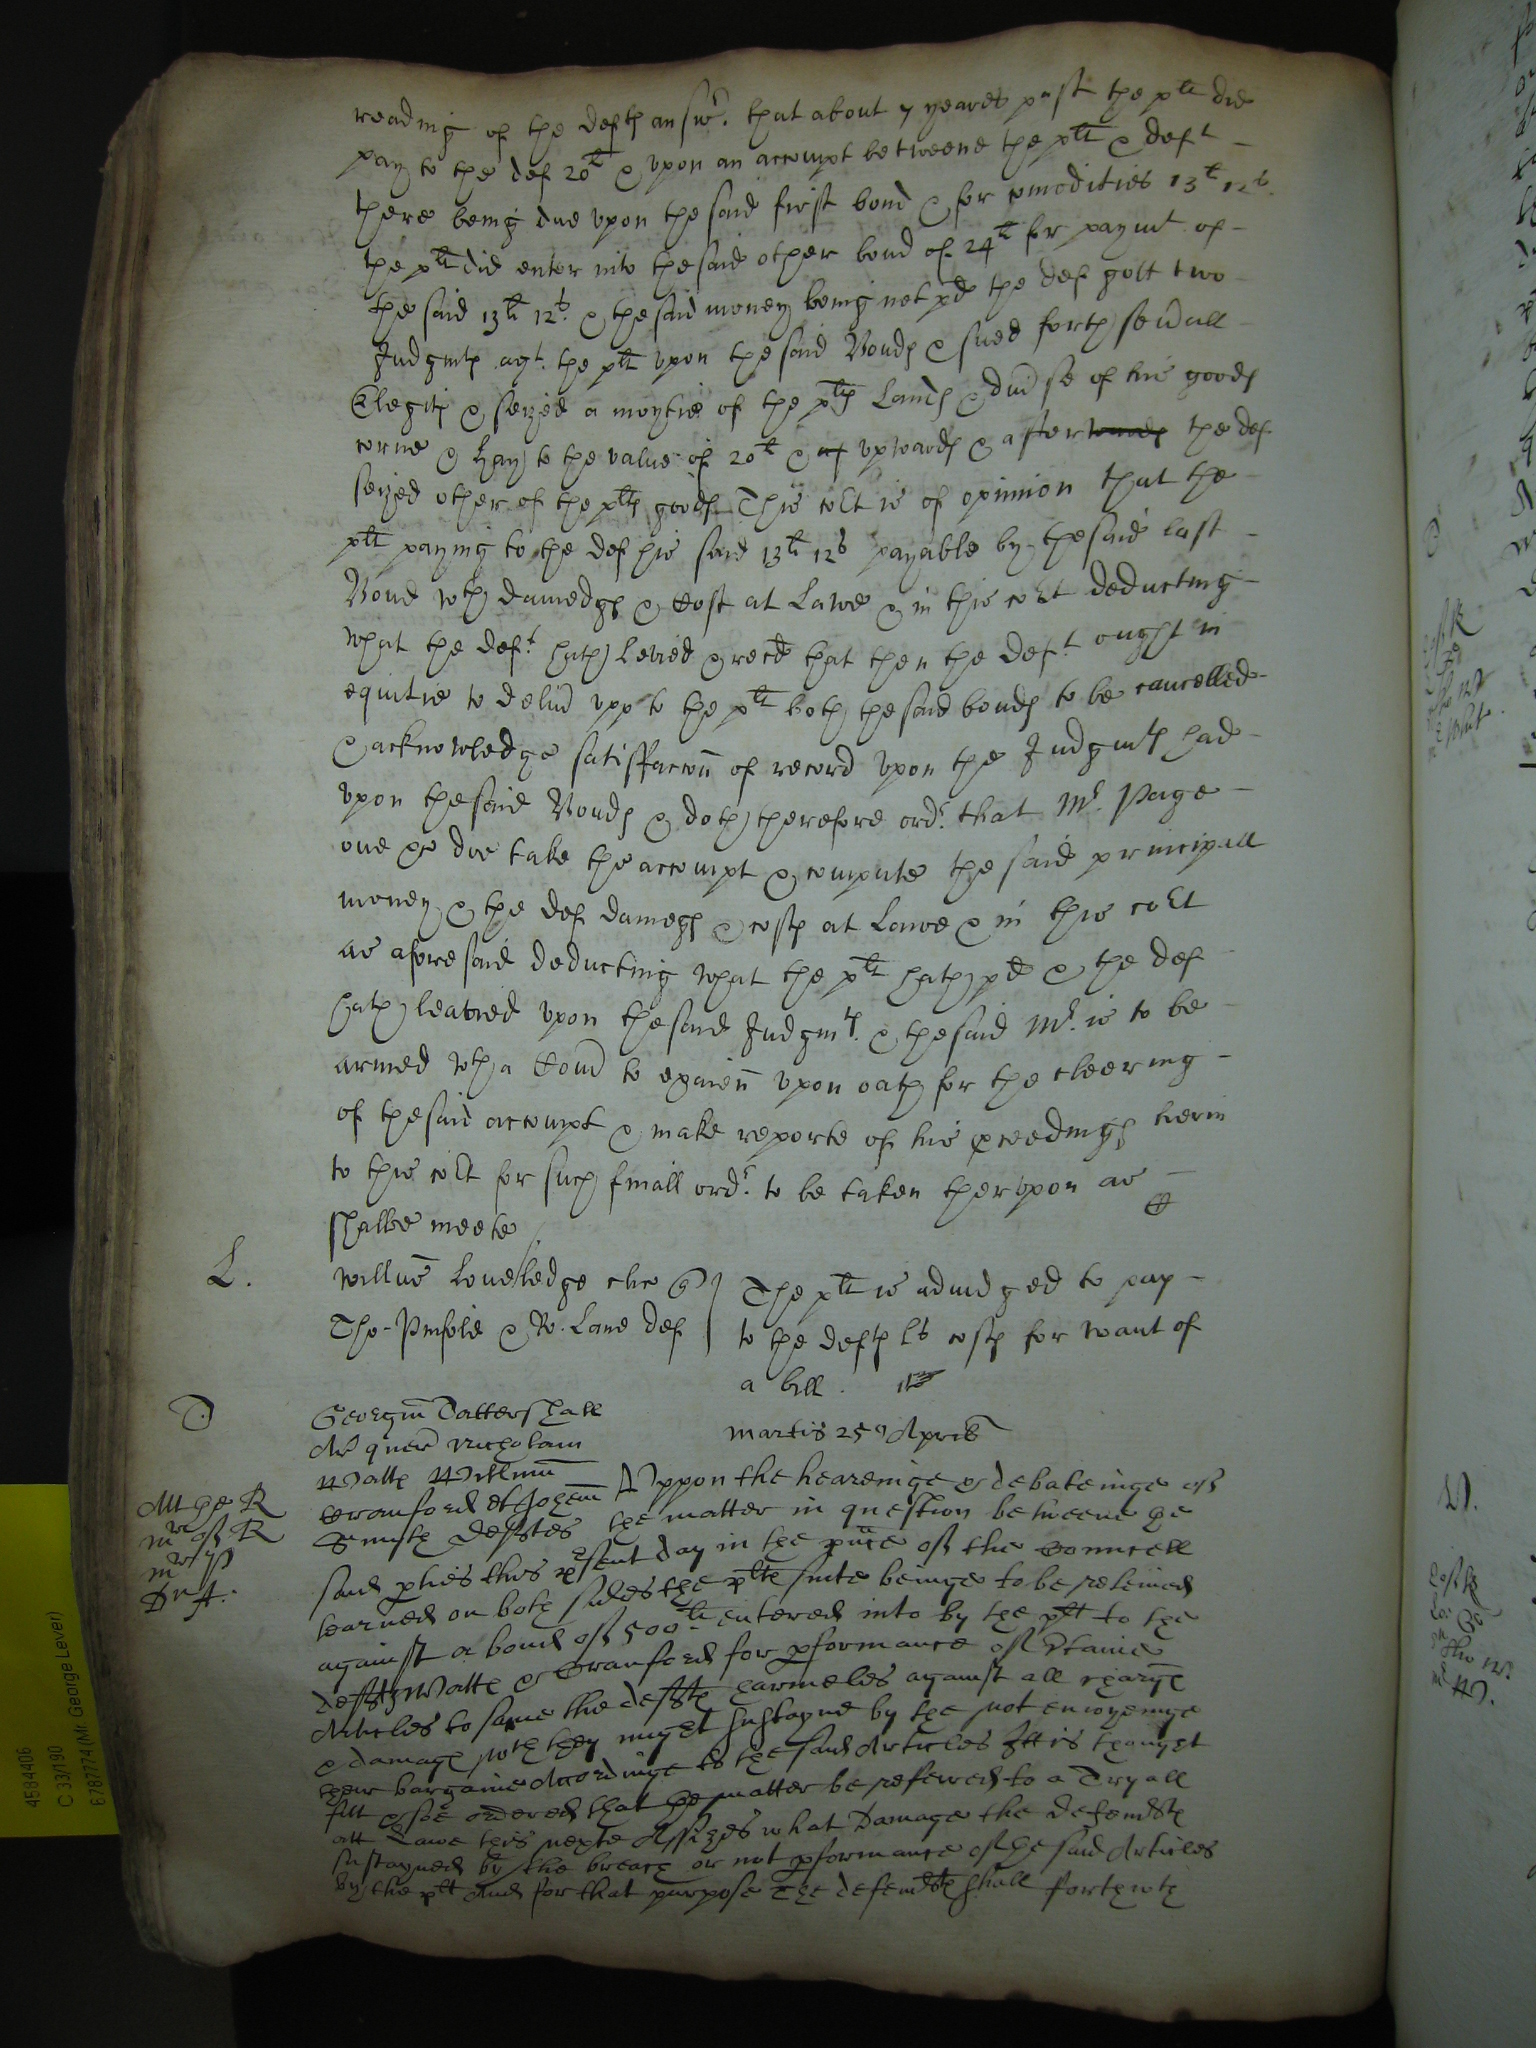 reading of the defts answ.r that about 7 yeares past the plt did
pay to the def 20li & upon an accompt betweene the plt & deft
there being due upon the said first bond & for comodities 13li 12s
the plt did enter into the said other bond of 24li for paymt of
the said 13li 12s & the said money being not pd the def gott two
Judgmts agt the plt upon the said Bonds & sued forth sevall
Elegits & seized a moytie of the plts Lands & divse of his goods
corne & hay to the value of 20li & upwards & after the def
seized other of the plts goods This cort is of opinion that the
plt paying to the def his said 13li 12s payable by the said last
Bond wth damedgs & Cost at Lawe & in this cort deducting
what the deft hath levied & recd that then the deft ought in
equitie to delivr upp to the plt both the said bonds to be cancelled
& acknowledge satisffaccon of record upon the Judgmts had
upon the said Bonds & doth therefore ordr that Mr Page
one &c doe take the accompt & compute the said principall
money & the def damegs & costs at Lawe & in this cort
as aforesaid deducting what the plt hath pd & the def
hath leavied upon the said Judgmts & the said Mr is to be
armed wth a Comn to examin upon oath for the cleering
of the said accompt & make reporte of his pceedings herin
to this cort for such finall ordr to be taken therupon as
shalbe meete
L.
Willm Lovelledge cler q
Tho. Pinfold & Ro. Lane def
The plt is adiudged to pay
to the defts ls costs for want of
a bill.
Martis 25o Aprilis
T
Georgiu Tattershall
Ar quer Nicholaum
Watts Willmu
Cranford et Johem
Smith deftes
Mr of R
Uppon the heareinge & debateinge of
the matter in question betweene the
said pties this psent day in the pnce of the Councell
learned on both sides the plts suite beinge to be releived
against a bond of 500li entered into by the plt to the
defts Watts & Cranford for pformance of Ctaine
Articles to save the defts harmeles against all charge
& damage wch they might sustayne by the not enioyeinge
their bargaine Accordinge to the said Articles Itt is thought
fitt & soe ordered that the matter be referred to a Tryall
att Lawe this nexte Assizes what Damage the defendts
sustayned by the breach or not pformance of the said Articles
by the plt And for that purpose The defendts shall forthwth
4584406
C 33/190
6787774 (Mr George Lever)